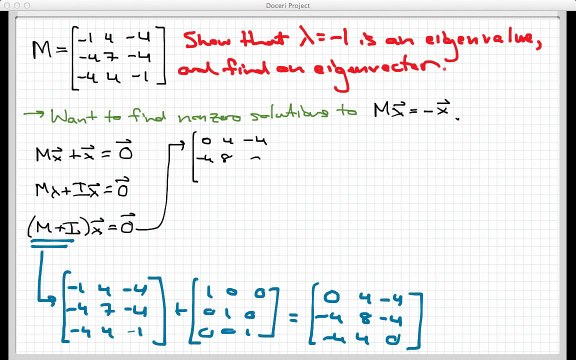 Doceri Project
M = [ -1 4 -4
-4 7 -4
-4 4 -1 ]
Show that λ = -1 is an eigenvalue,
and find an eigenvector.
→ Want to find nonzero solutions to Mx⃗ = -x⃗.
Mx⃗ + x⃗ = 0⃗
Mλ + Ix⃗ = 0⃗
(M+I)x⃗ = 0⃗
[ 0 4 -4
-4 8
[ -1 4 -4
-4 7 -4
-4 4 -1 ]
+
[ 1 0 0
0 1 0
0 0 1 ]
=
[ 0 4 -4
-4 8 -4
-4 4 0 ]